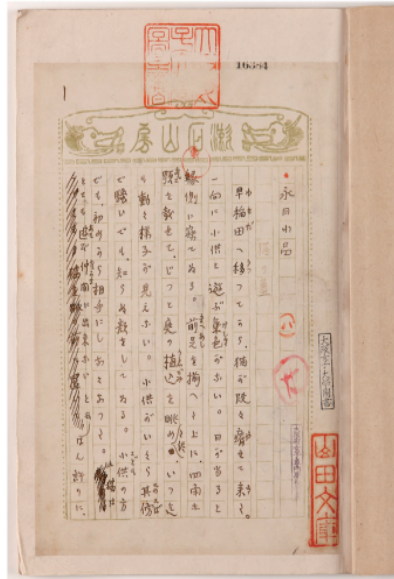 漱石山房
永日小品
早稲田へ移つてから、猫が段々瘠せて来た。
一向に小供と遊ぶ気色がない。日が当ると
縁側に寐てゐる。前足を揃へた上に、四角な
顎を載せて、じつと庭の植込を眺めいつ迄
も動く様子が見えない。小供がいくら其傍
で騒いでも、知らぬ顔をしてゐる。小供の方
でも、初めから相手にしなくなつた。猫は
とても遊び仲間に出来ないと云はん許りに、
山田文庫